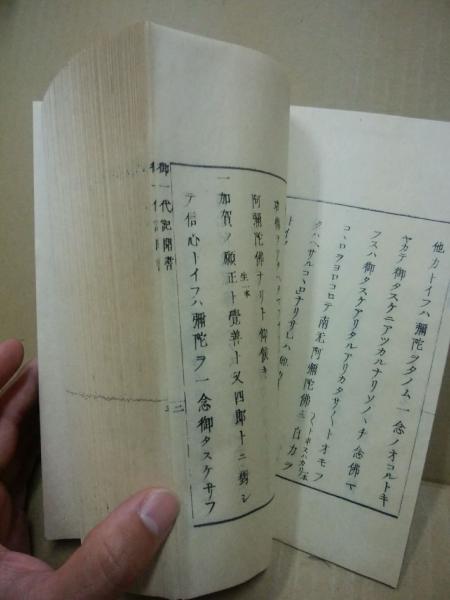 他力トイフハ彌陀ヲタノム一念ノオコルトキ
ヤカテ御タスケニアツカルナリソノヽチ念佛マ
フスハ御タスケアリタルアリカタサ〱ト オモフ
コヽロヲヨロコヒテ南无阿彌陀佛ニ 自力ヲ
クハヘサルコヽロナリサレハ
トイフ
阿彌陀佛ナリト
生一本
一加賀ノ願正ト覺善ト又四郎トニ對シ
テ信心トイフハ彌陀ヲ一念御タスケサフ
御一代記聞書
二